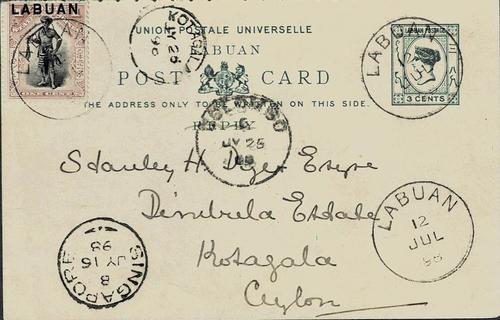 LABUAN
ONE CENT
LABUAN
KOTAGALA
JY 26
98
UNION POSTALE UNIVERSELLE
LABUAN
POST CARD
THE ADDRESS ONLY TO BE WRITTEN ON THIS SIDE.
REPLY
LABUAN POSTAGE
3 CENTS
LABUAN
COLOMBO
JY 25
98
Stanley H. Dyer Esqre
Dimbula Estate
Kotagala
Ceylon
LABUAN
12
JUL
98
SINGAPORE
8
JY 16
98